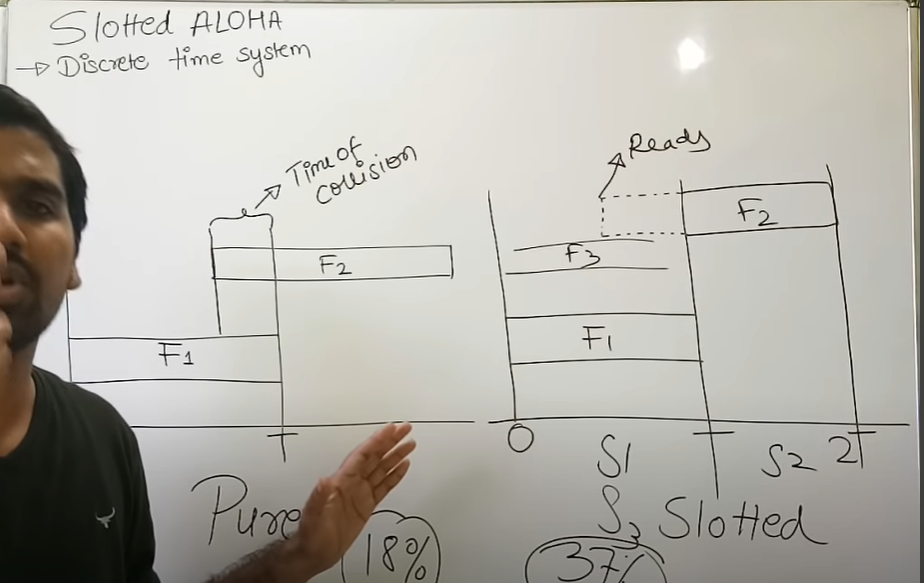 Slotted ALOHA
→ Discrete time system
Time of
collision
F2
F1
T
Pure
18%
Ready
F2
F3
F1
0
T
2T
S1
S2
S3
Slotted
37%